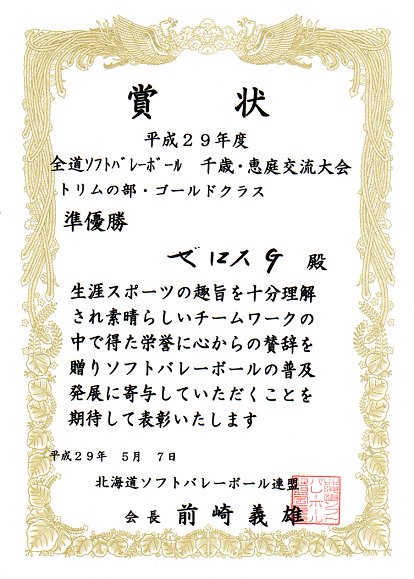 賞状
平成２９年度
全道ｿﾌﾄﾊﾞﾚｰﾎﾞｰﾙ 千歳・恵庭交流大会
トリムの部・ゴールドクラス
準優勝
ゼロスG 殿
生涯スポーツの趣旨を十分理解
され素晴らしいチームワークの
中で得た栄誉に心からの賛辞を
贈りソフトバレーボールの普及
発展に寄与していただくことを
期待して表彰いたします
平成２９年 ５月 ７日
北海道ソフトバレーボール連盟
会長 前崎義雄